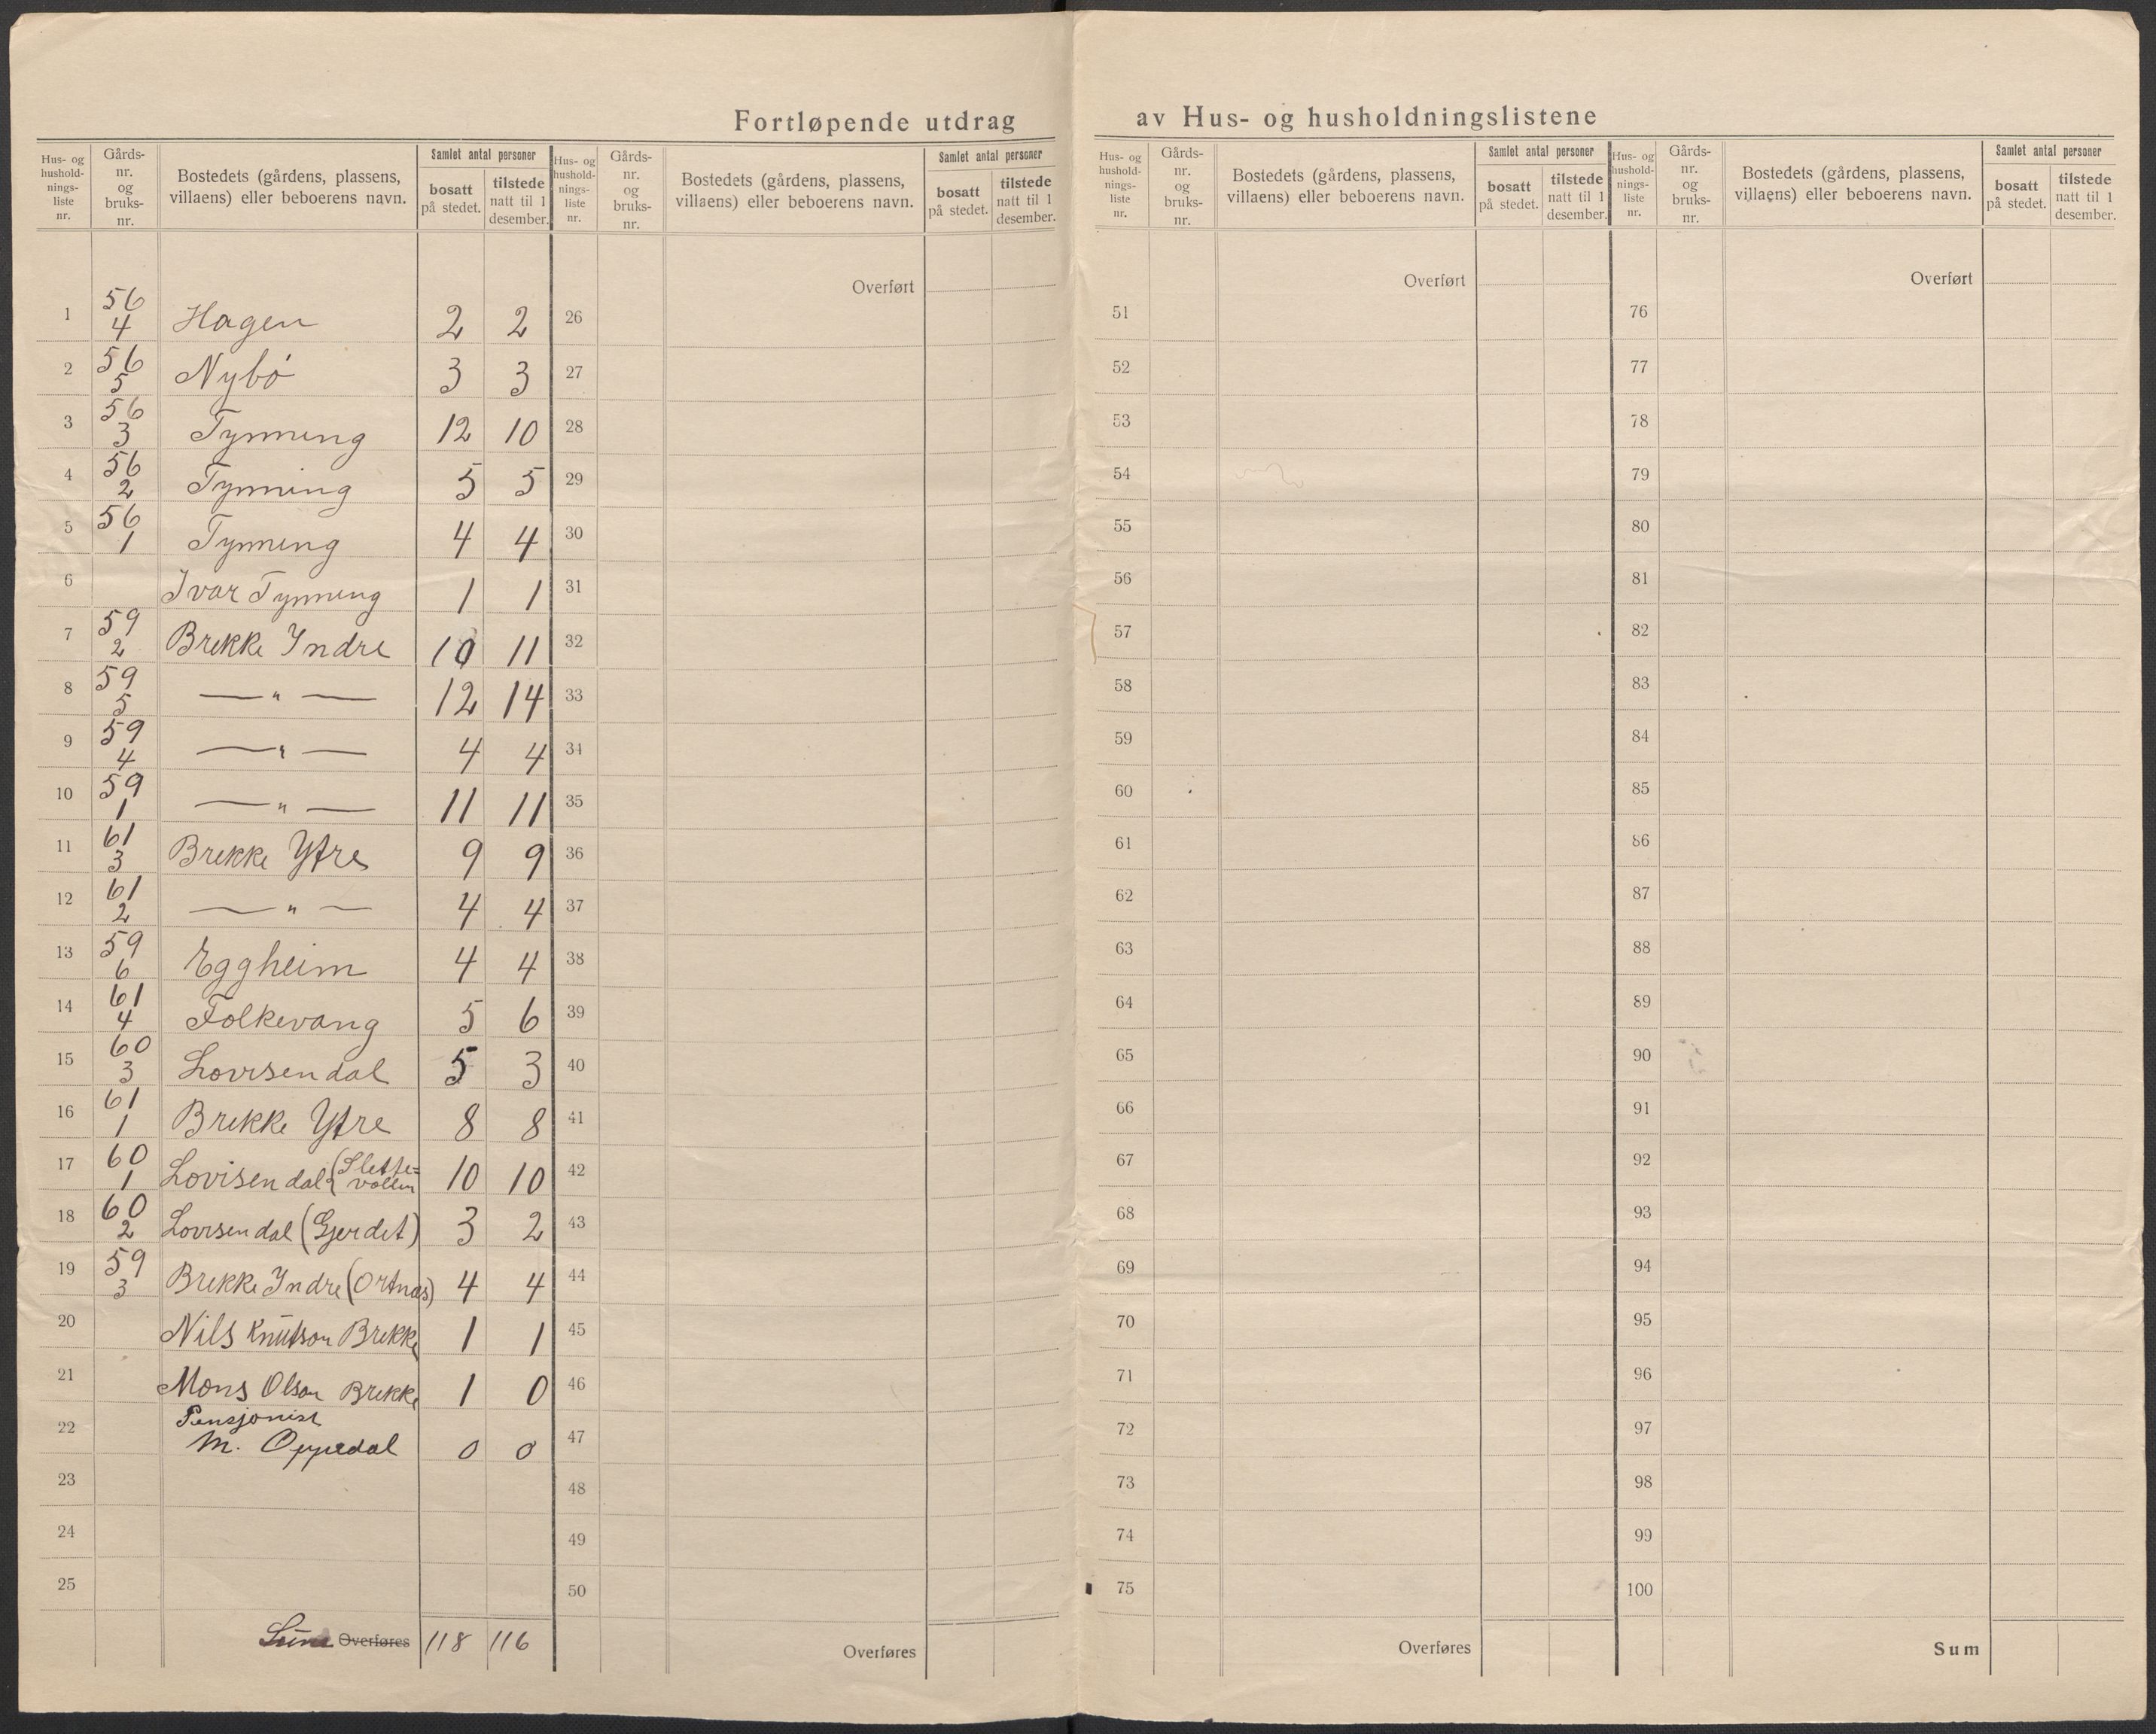 Fortløpende utdrag av Hus- og husholdningslistene
Hus- og hushold-nings-liste nr. Gårds-nr. og bruks-nr. Bostedets (gårdens, plassens, villaens) eller beboerens navn. Samlet antal personer bosatt på stedet. tilstede natt til 1 desember.
1 56 4 Hagen 2 2
2 56 5 Nybó 3 3
3 56 3 Tynning 12 10
4 56 2 Tynning 5 5
5 56 1 Tynning 4 4
6 Ivar Tynning 1 1
7 59 2 Brekke Indre 10 11
8 59 5 — " — 12 14
9 59 4 — " — 4 4
10 59 1 — " — 11 11
11 61 3 Brekke Ytre 9 9
12 61 2 — " — 4 4
13 59 6 Eggheim 4 4
14 61 4 Folkevang 5 6
15 60 3 Lovisendal 5 3
16 61 1 Brekke Ytre 8 8
17 60 1 Lovisendal (Slette=vollen 10 10
18 60 2 Lovisendal (Gjerdet) 3 2
19 59 3 Brekke Indre (Ortnæs) 4 4
20 Nils Knutson Brekke 1 1
21 Mons Olson Brekke 1 0
22 Pensjonist
M. Oppedal 0 0
23
24
25
Sum Overføres 118 116
Hus- og hushold-nings-liste nr. Gårds-nr. og bruks-nr. Bostedets (gårdens, plassens, villaens) eller beboerens navn. Samlet antal personer bosatt på stedet. tilstede natt til 1 desember.
Overført
26
27
28
29
30
31
32
33
34
35
36
37
38
39
40
41
42
43
44
45
46
47
48
49
50
Overføres
Hus- og hushold-nings-liste nr. Gårds-nr. og bruks-nr. Bostedets (gårdens, plassens, villaens) eller beboerens navn. Samlet antal personer bosatt på stedet. tilstede natt til 1 desember.
Overført
51
52
53
54
55
56
57
58
59
60
61
62
63
64
65
66
67
68
69
70
71
72
73
74
75
Overføres
Hus- og hushold-nings-liste nr. Gårds-nr. og bruks-nr. Bostedets (gårdens, plassens, villaens) eller beboerens navn. Samlet antal personer bosatt på stedet. tilstede natt til 1 desember.
Overført
76
77
78
79
80
81
82
83
84
85
86
87
88
89
90
91
92
93
94
95
96
97
98
99
100
Sum